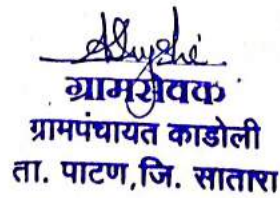 ग्रामसेवक
ग्रामपंचायत काडोली
ता. पाटण,जि. सातारा